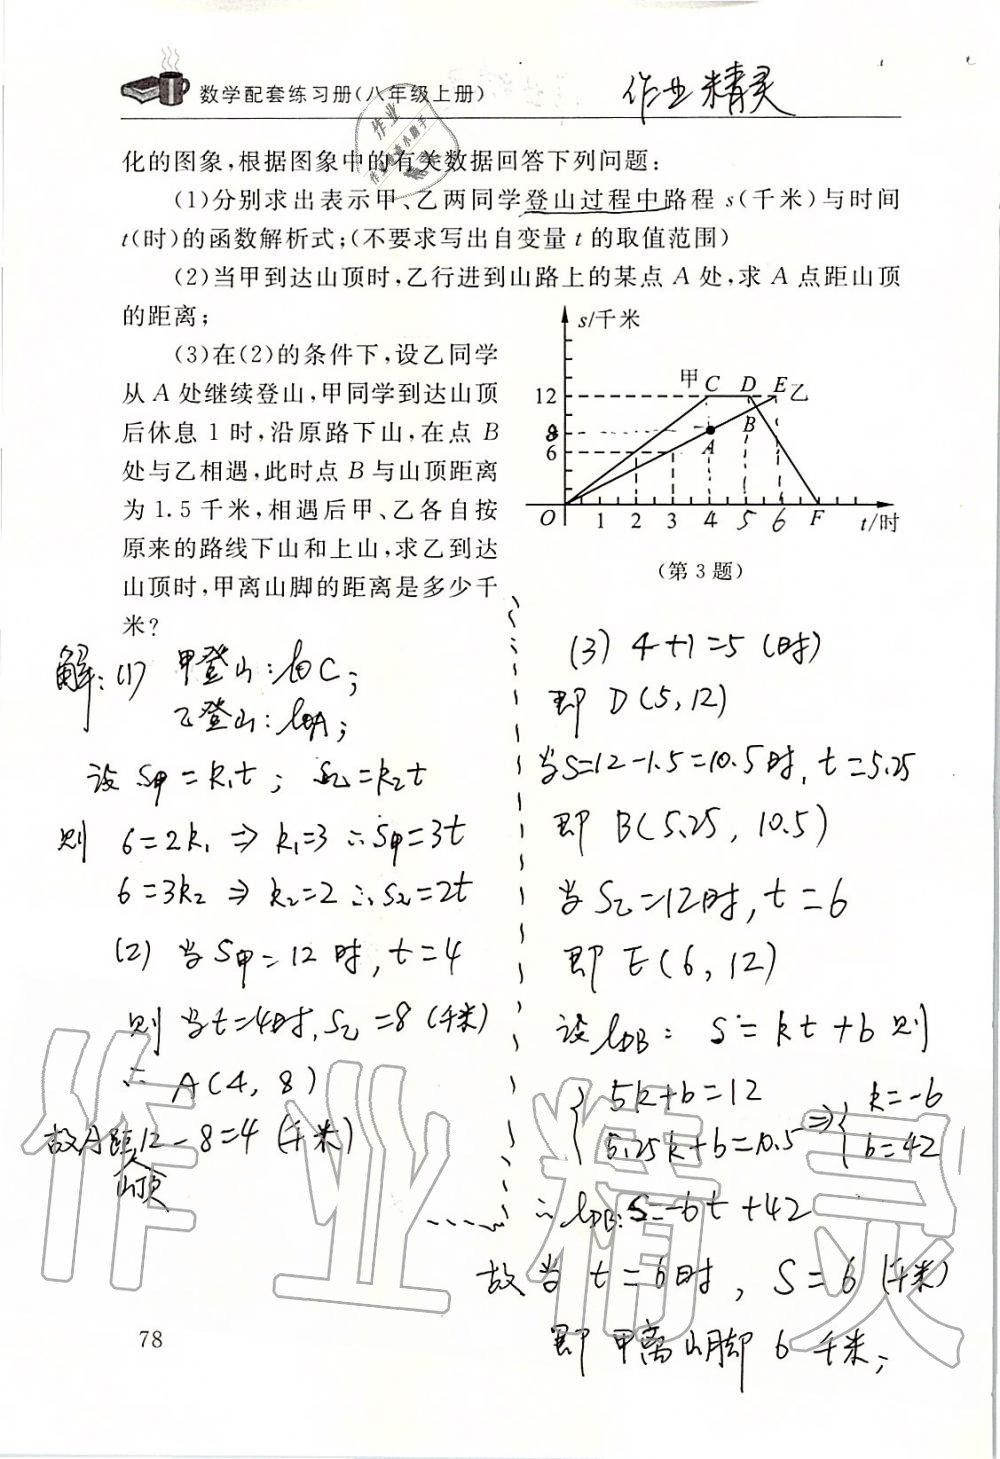 数学配套练习册(八年级上册)
作业精灵
化的图象,根据图象中的有关数据回答下列问题:
(1)分别求出表示甲、乙两同学登山过程中路程 s(千米)与时间
t(时)的函数解析式;(不要求写出自变量 t 的取值范围)
(2)当甲到达山顶时,乙行进到山路上的某点 A 处,求 A 点距山顶
的距离;
(3)在(2)的条件下,设乙同学
从 A 处继续登山,甲同学到达山顶
后休息 1 时,沿原路下山,在点 B
处与乙相遇,此时点 B 与山顶距离
为 1.5 千米,相遇后甲、乙各自按
原来的路线下山和上山,求乙到达
山顶时,甲离山脚的距离是多少千
米?
s/千米
甲 C D E 乙
12
8 B
6 A
O 1 2 3 4 5 6 F t/时
(第 3 题)
解:(1) 甲登山:lOC;
乙登山:lOA;
设 S甲=k₁t; S乙=k₂t
则 6=2k₁ ⇒ k₁=3 ∴S甲=3t
6=3k₂ ⇒ k₂=2 ∴S乙=2t
(2) 当S甲=12 时,t=4
则 当t=4时,S乙=8 (千米)
∴ A(4, 8)
故A距12-8=4 (千米)
山顶
(3) 4+1=5 (时)
即 D(5,12)
当S=12-1.5=10.5时,t=5.25
即 B(5.25, 10.5)
当S乙=12时,t=6
即 E(6,12)
设lDB: S=kt+b 则
{5k+b=12
5.25k+b=10.5 ⇒ {k=-6
b=42
∴lDB:S=-6t+42
故当 t=6时, S=6 (千米)
即 甲离山脚 6 千米;
78
作业精灵